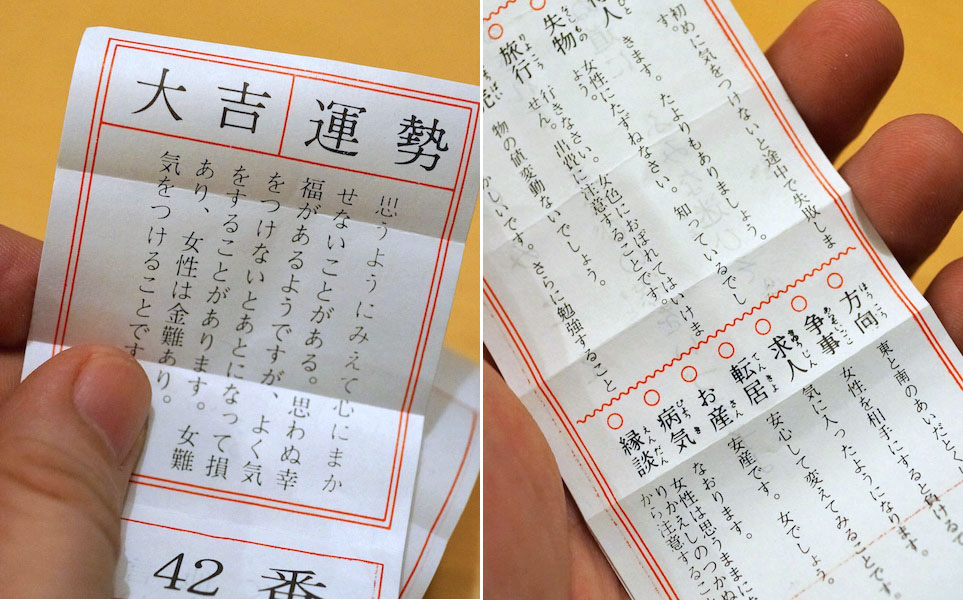 大吉 運勢
思うようにみえて心にまか
せないことがある。思わぬ幸
福があるようですが、よく気
をつけないとあとになって損
をすることがあります。女難
あり、女性は金難あり。
気をつけることです
42番
初めに気をつけないと途中で失敗しま
す。
人 きます。たよりもありましょう。
失物 女性にたずねなさい。知っているでし
よう。
旅行 行きなさい。出発に注意することです。
女色におぼれてはいけま
せん。
物の値変動ないでしょう。
かしいです。さらに勉強すること
方向 東と南のあいだとく
争事 女性を相手にすると負けるで
求人 気に入ったようになります。
転居 安心して変えてみることです。
お産 安産です。女でしょう。
病気 なおります。
縁談 女性は思うままに
りかえしのつかぬ
から注意する